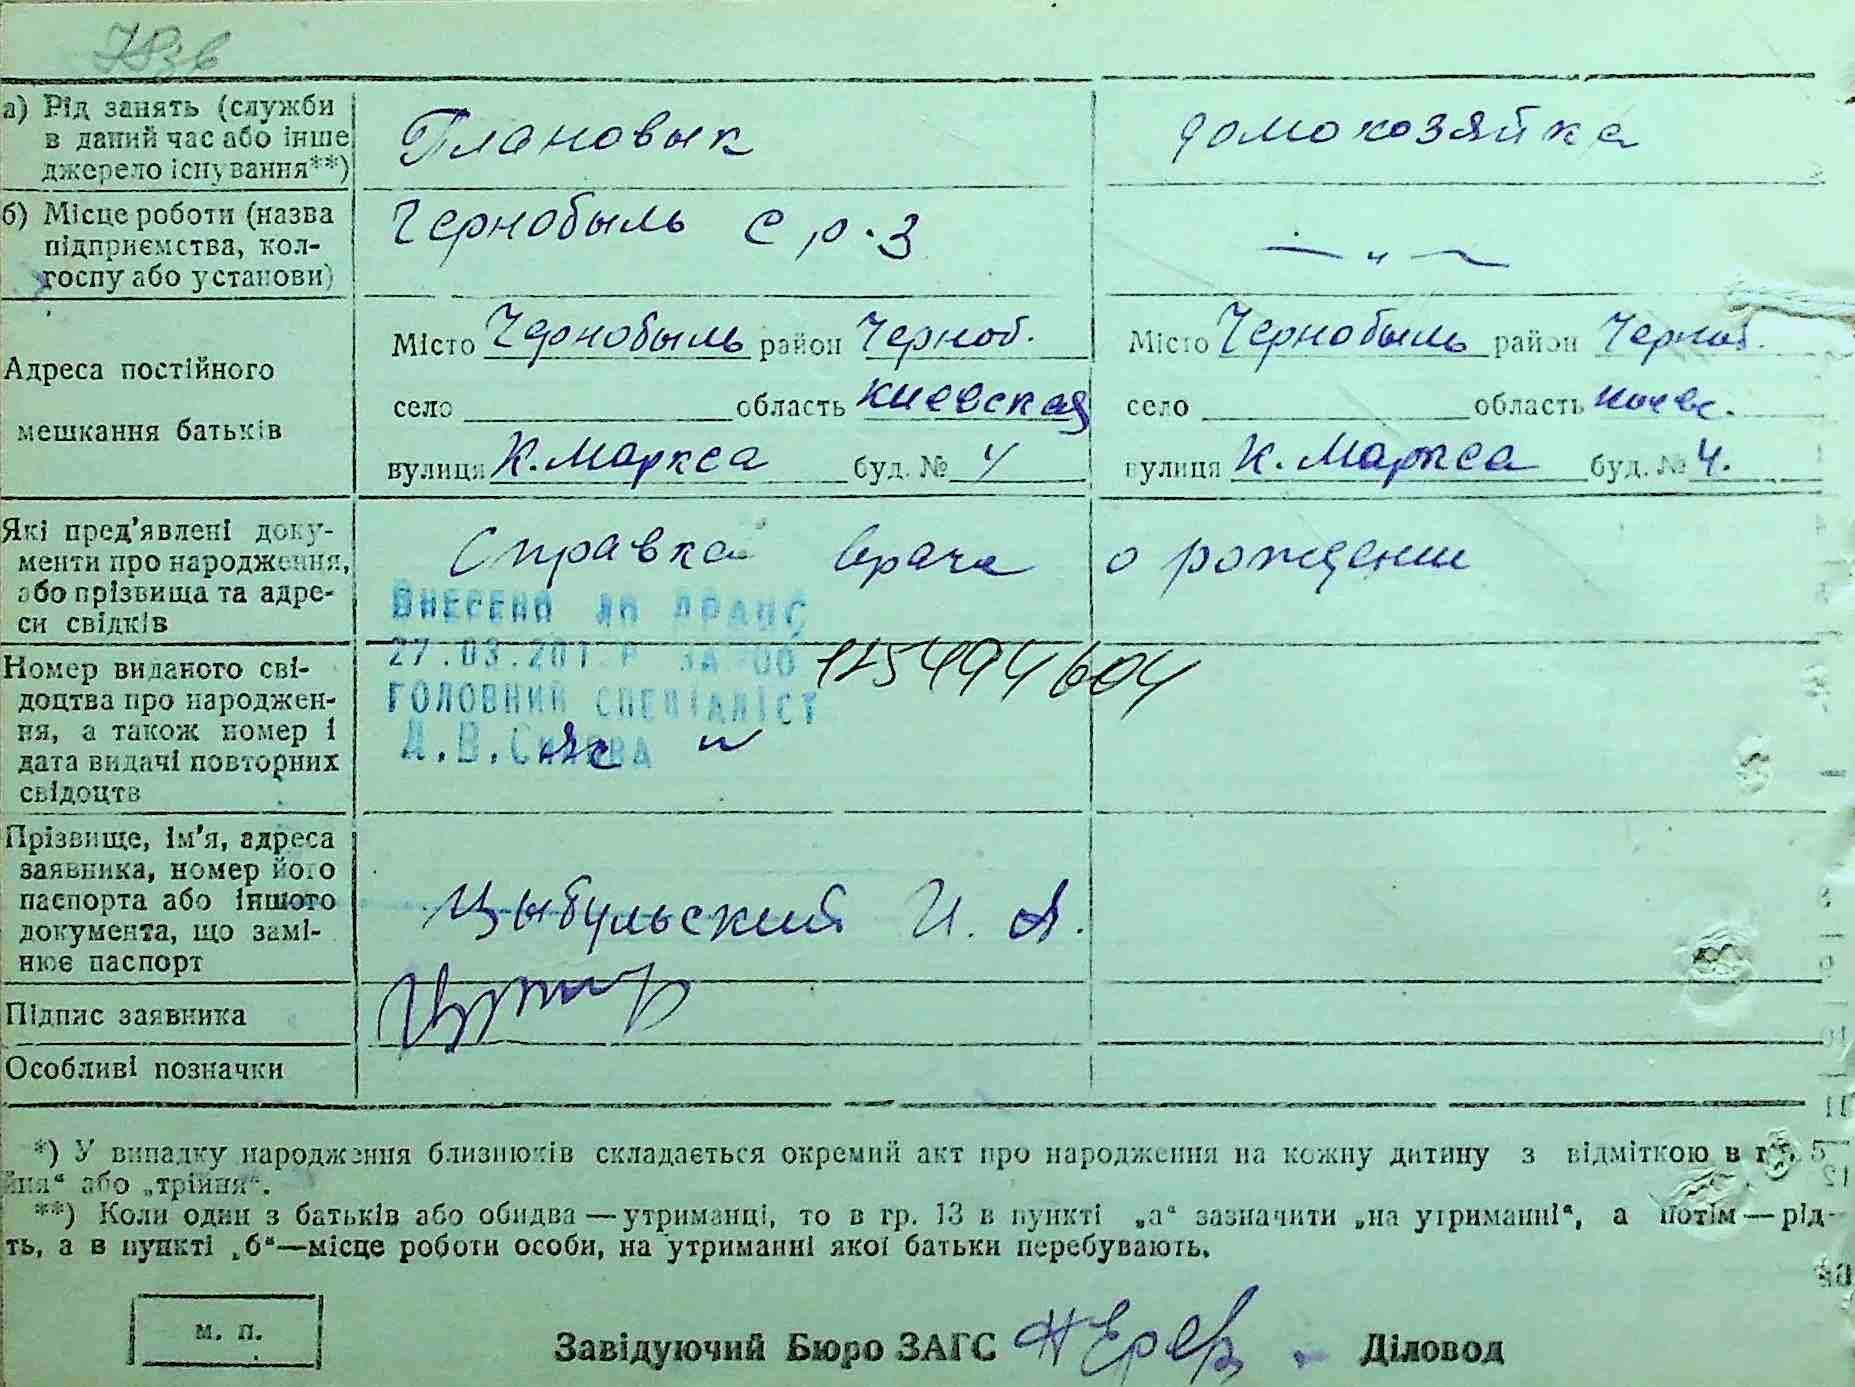 а) Рід занять (служби
в даний час або інше
джерело існування**)
Плановык
домохозяйка
б) Місце роботи (назва
підприємства, кол-
госпу або установи)
Чернобыль с р.з
— „ —
Адреса постійного
мешкання батьків
Місто Чернобыль район Черноб.
село область киевская
вулиця К. Маркса буд. № 4
Місто Чернобыль район Черноб.
село область киевс.
вулиця К. Маркса буд. № 4.
Які пред'явлені доку-
менти про народження,
або прізвища та адре-
си свідків
Справка врача о рождении
Номер виданого сві-
доцтва про народжен-
ня, а також номер і
дата видачі повторних
свідоцтв
ВНЕСЕНО ДО ДРАЦС
27.03.201 Р ЗА
ГОЛОВНИЙ СПЕЦІАЛІСТ
А.В.
Прізвище, ім'я, адреса
заявника, номер його
паспорта або іншого
документа, що замі-
нює паспорт
Цыбульский И. А.
Підпис заявника
Особливі позначки
*) У випадку народження близнюків складається окремий акт про народження на кожну дитину з відміткою в гр. 5—
йня“ або „трійня“.
**) Коли один з батьків або обидва — утриманці, то в гр. 13 в пункті „а“ зазначити „на утриманні“, а потім — рід-
ть, а в пункті „б“—місце роботи особи, на утриманні якої батьки перебувають.
м. п.
Завідуючий Бюро ЗАГС Діловод